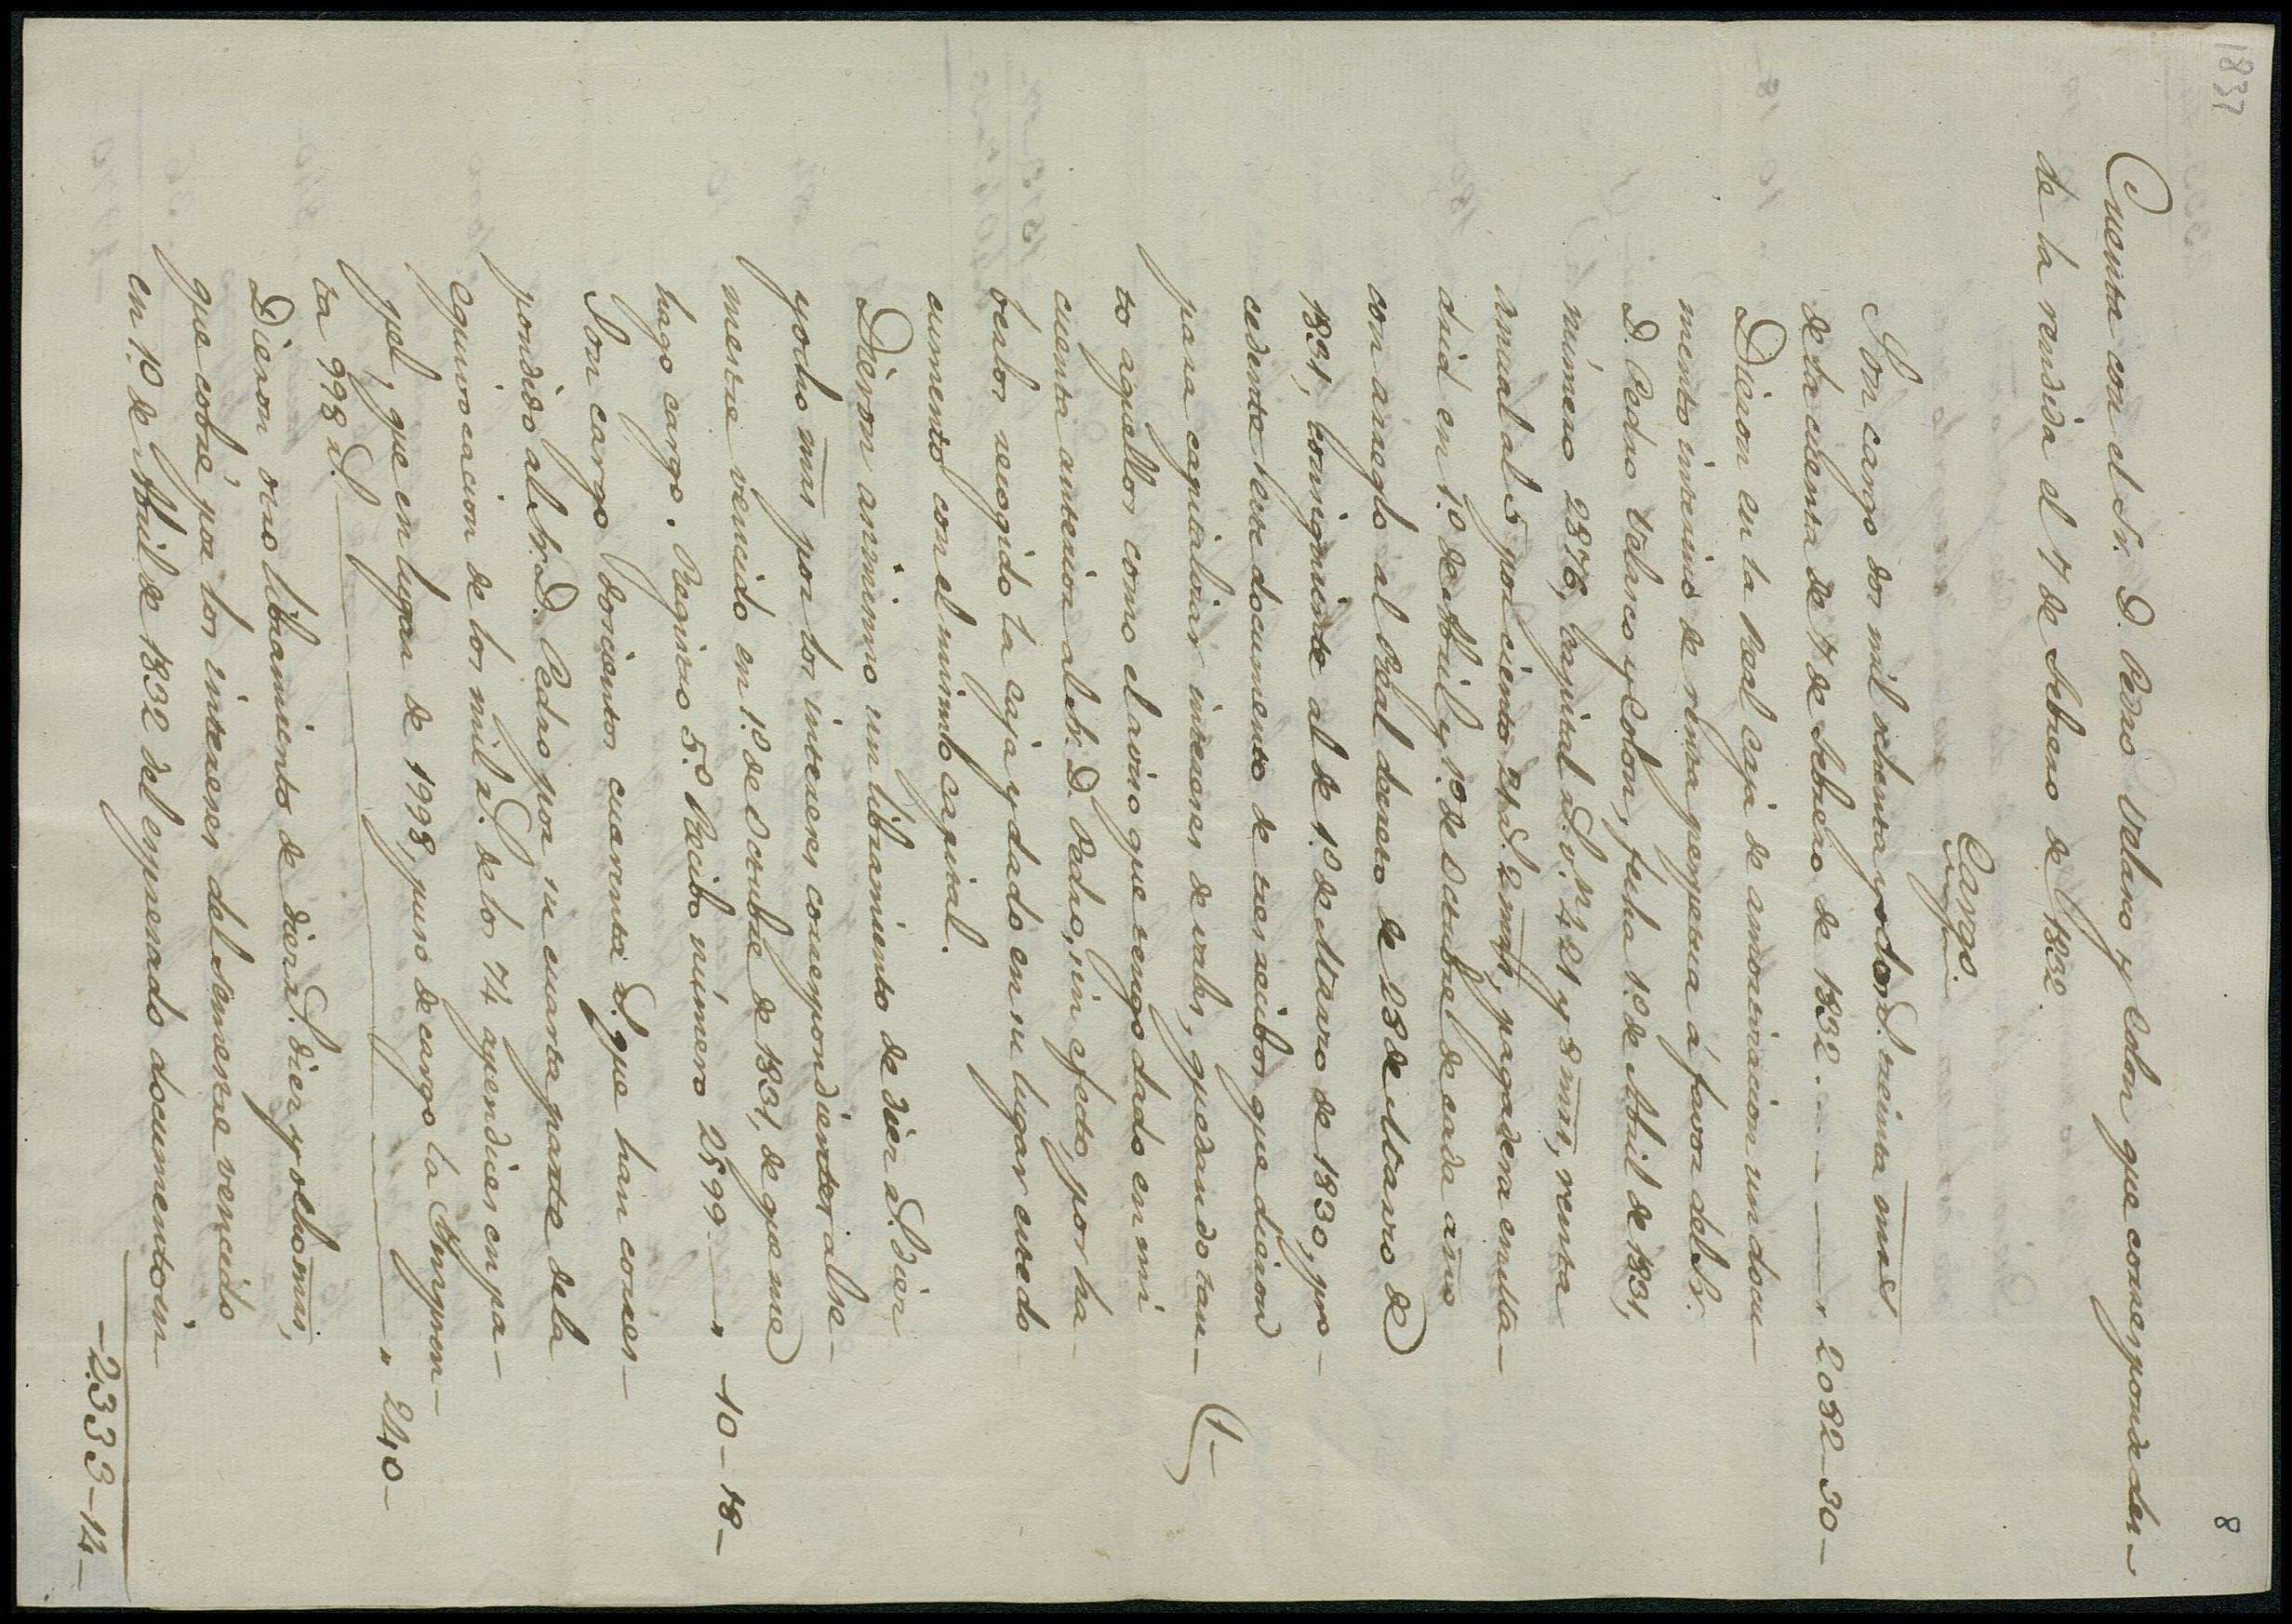 1832
8
Cuenta con el Sr. D. Pedro Velasco y Colon que corresponde des-
de la rendida el 7 de Febrero de 1832.
Cargo.
Son cargo dos mil ochenta y dos rs. treinta mrs
de la cuenta de 7 de Febrero de 1832 - - - " 2082-30-
Dieron en la Real Caja de amortizacion un docu-
mento interino de renta perpetua á favor del Sr.
D. Pedro Velasco y Colon, fecha 1.º de Abril de 1831,
número 2876, Capital rs. vn. 421 y 8 mrs, renta
anual al 5 por ciento 21 rs. 2 mrs, pagadera en mita-
dad en 1.º de Abril y 1.º de Octubre de cada año
con arreglo al Real decreto de 23 de Marzo de
1831, consiguiente al de 1.º de Marzo de 1830, pro-
cedente este documento de tres recibos que dieron
para capitalizar intereses de vales, quedando tan-
to aquellos como el aviso que tengo dado en mi
cuenta anterior al Sr. D. Pedro, sin efecto, por ha-
berlos recogido la caja y dado en su lugar este do-
cumento con el mismo capital. 1-
Dieron asimismo un libramiento de diez rs. diez
y ocho mrs por los intereses correspondientes al se-
mestre vencido en 1.º de Octubre de 1831, de que me
hago cargo. Registro 5.º Recibo número 2599 - " -10-18-
Son cargo doscientos cuarenta rs. que han corres-
pondido al Sr. D. Pedro por su cuarta parte de la
equivocacion de los mil rs. de los 74 agendies en pa-
pel, que en lugar de 1998, puso de cargo la
ta 998 rs. - - - " 240-
Dieron otro libramiento de diez rs. diez y ocho mrs,
que cobré por los intereses del semestre vencido
en 1.º de Abril de 1832 del espresado documento in-
-2333-14-